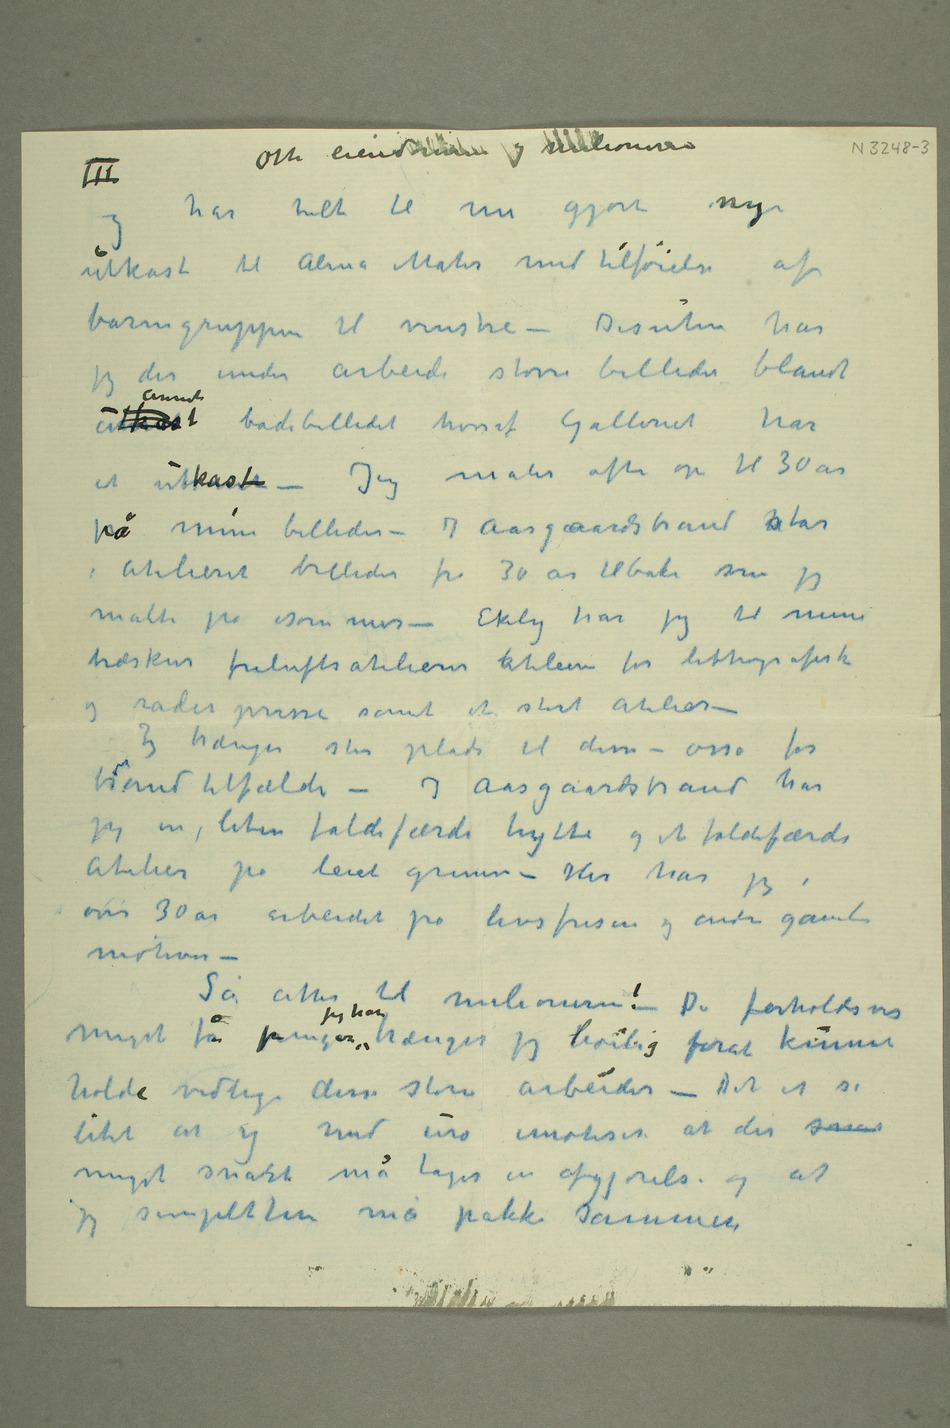 N 3248-3
III
Ofte eiendommene og millionerne
jeg har helt til nu gjort nye
utkast til Alma Mater med tilføielse af
barnegruppen til venstre – Desuten har
jeg der under arbeide større billeder blandt
annet badebilledet hvoraf Galleriet har
et utkast – Jeg maler ofte op til 30 år
på mine billeder – I Aasgaardstrand står
i Atelieret billeder fra 30 år tilbake som jeg
malte på isommer – Ekely har jeg til mine
træskur friluftsatelierer Atelieer for lithografisk
og rader presse samt et stort atelier –
Jeg trænger stor plads til disse – også for
brandtilfælde – I Aasgaardstrand har
jeg en liten faldefærdi hytte og et faldefærdi
Atelier på leiet grunn – Her har jeg i
over 30 år arbeidet på livsfrisen og andre gamle
motiver –
Så atter til millionerne! – De forholdsvis
meget få penger jeg har trænger jeg høilig forat kunne
holde vedlige disse store arbeider – Det er så
litet at jeg med uro imøteser at der snart
meget snart må tages en afgjørelse og at
jeg simpelthen må pakke sammen